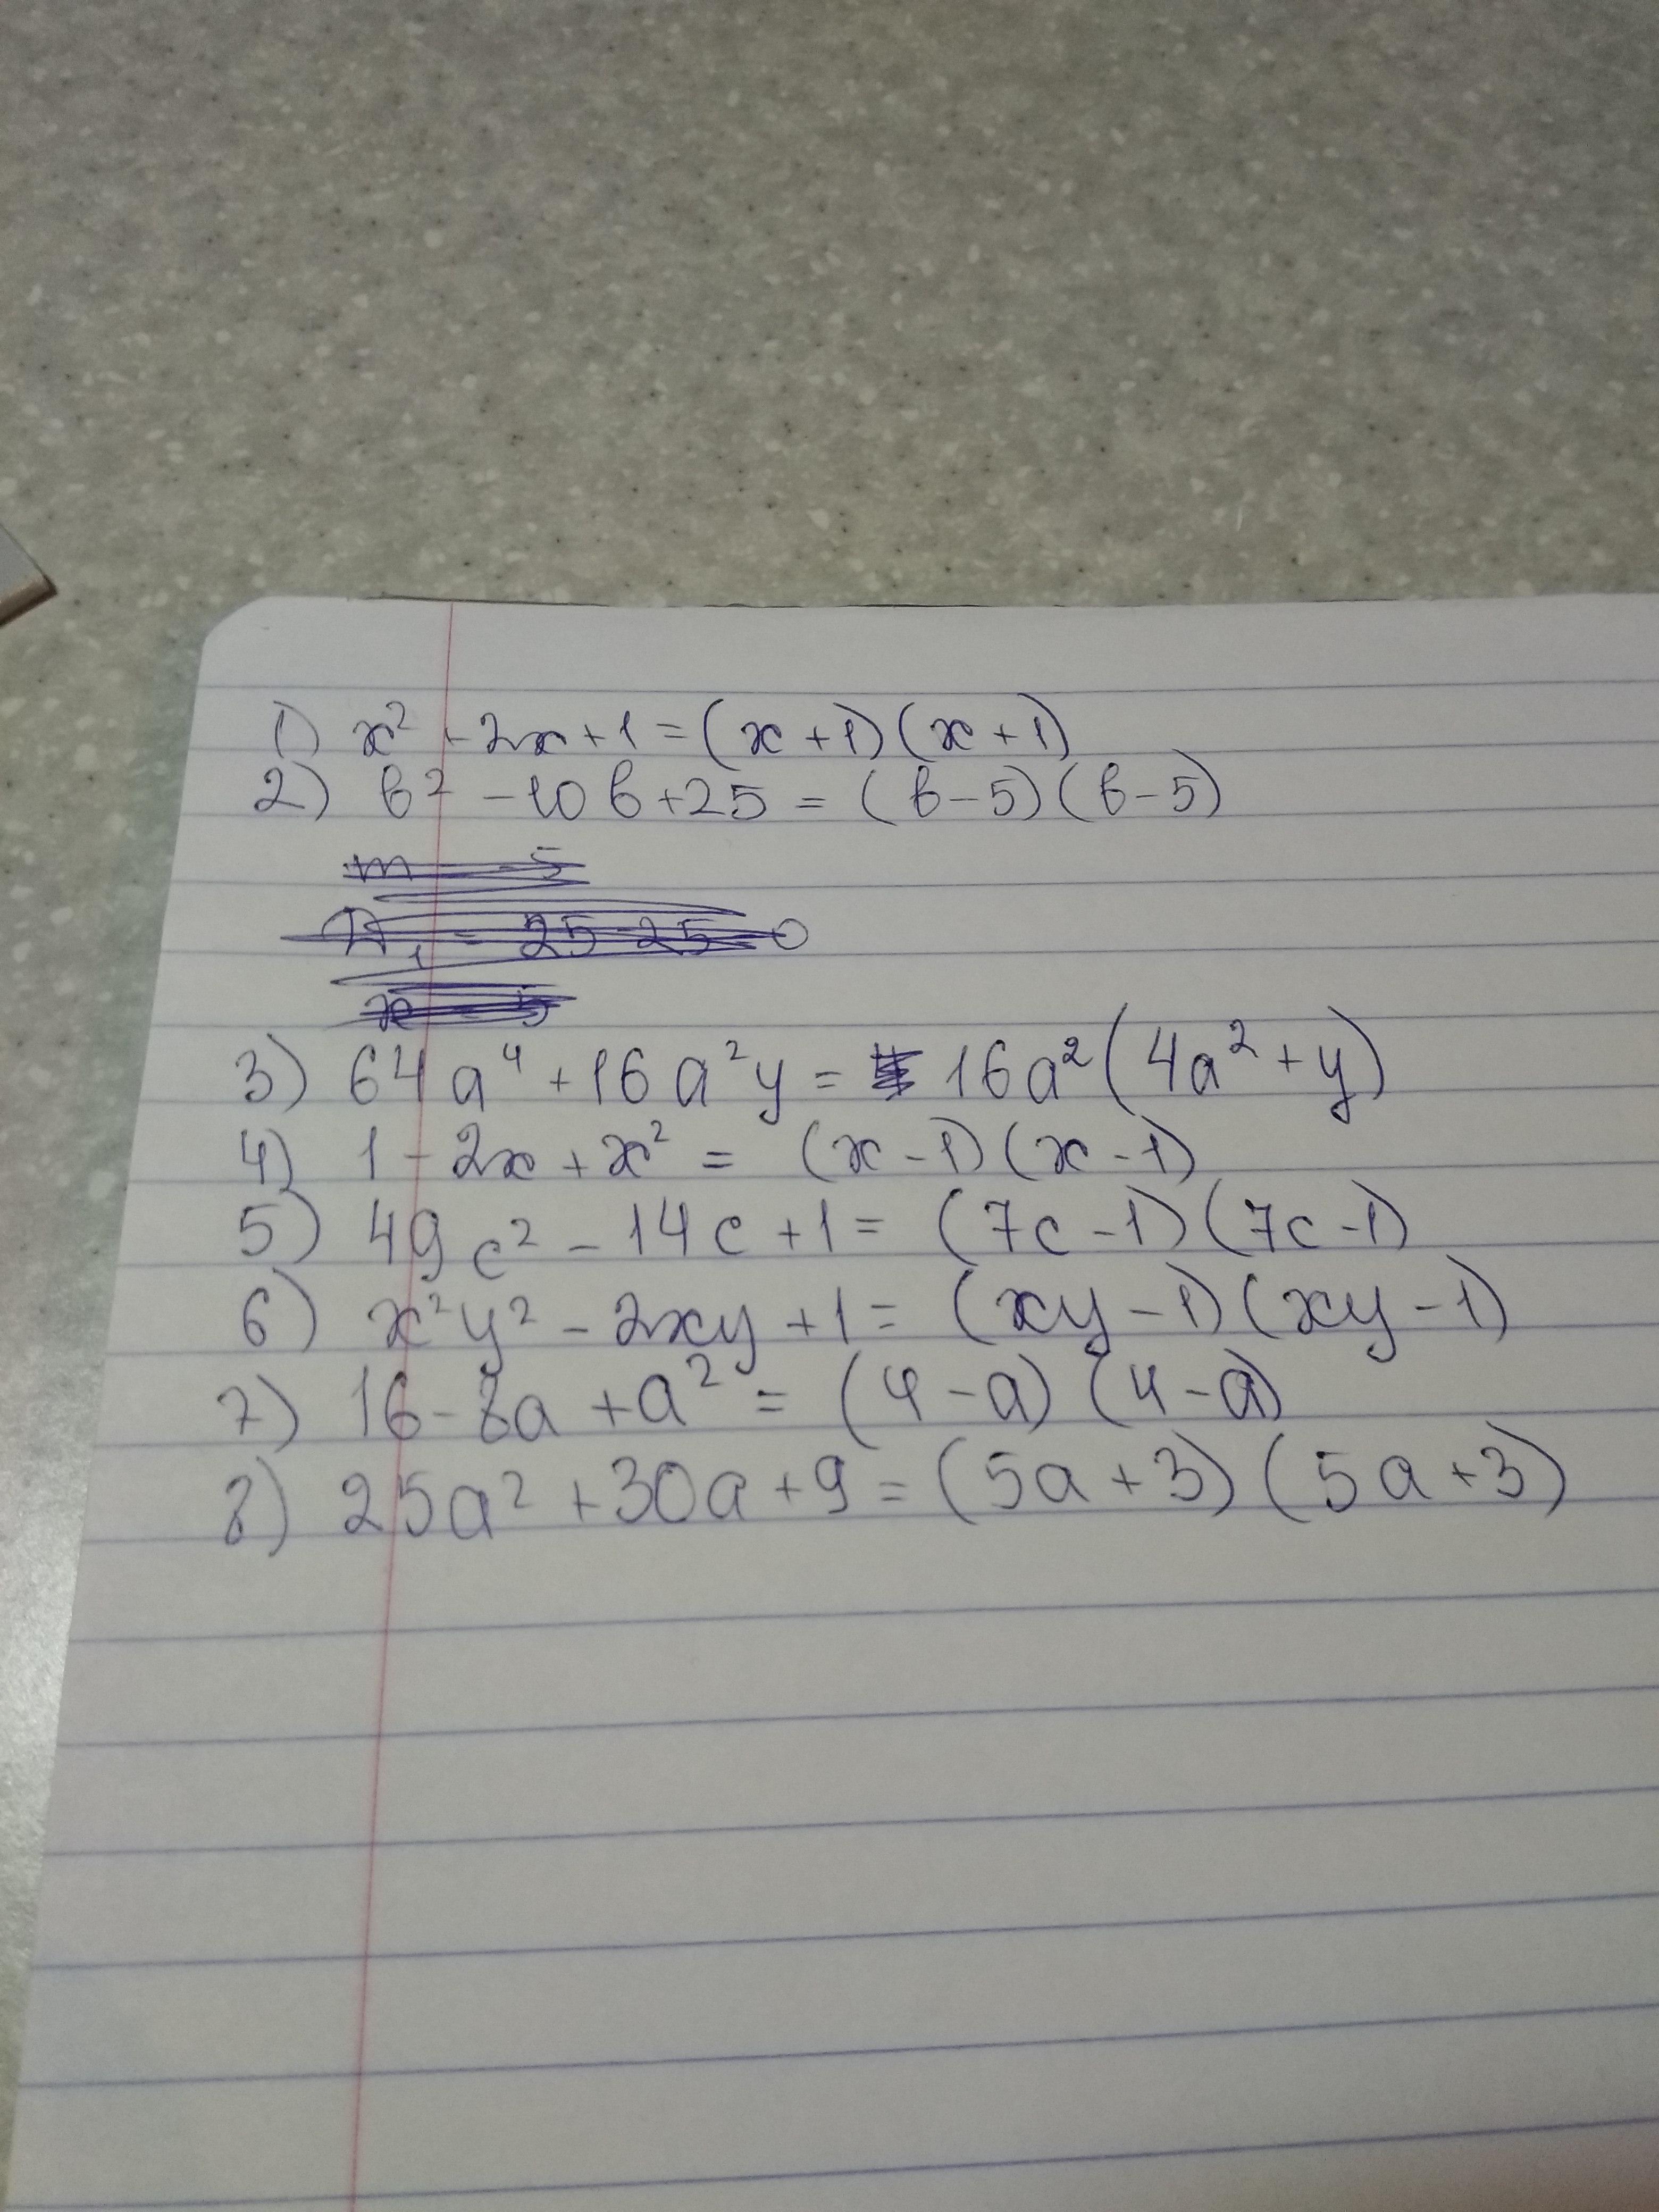 1) x² + 2x + 1 = (x + 1)(x + 1)
2) b² - 10b + 25 = (b - 5)(b - 5)
m = -5
D₁ = 25 - 25 = 0
x = 5
3) 64a⁴ + 16a²y = 16a²(4a² + y)
4) 1 - 2x + x² = (x - 1)(x - 1)
5) 49c² - 14c + 1 = (7c - 1)(7c - 1)
6) x²y² - 2xy + 1 = (xy - 1)(xy - 1)
7) 16 - 8a + a² = (4 - a)(4 - a)
8) 25a² + 30a + 9 = (5a + 3)(5a + 3)